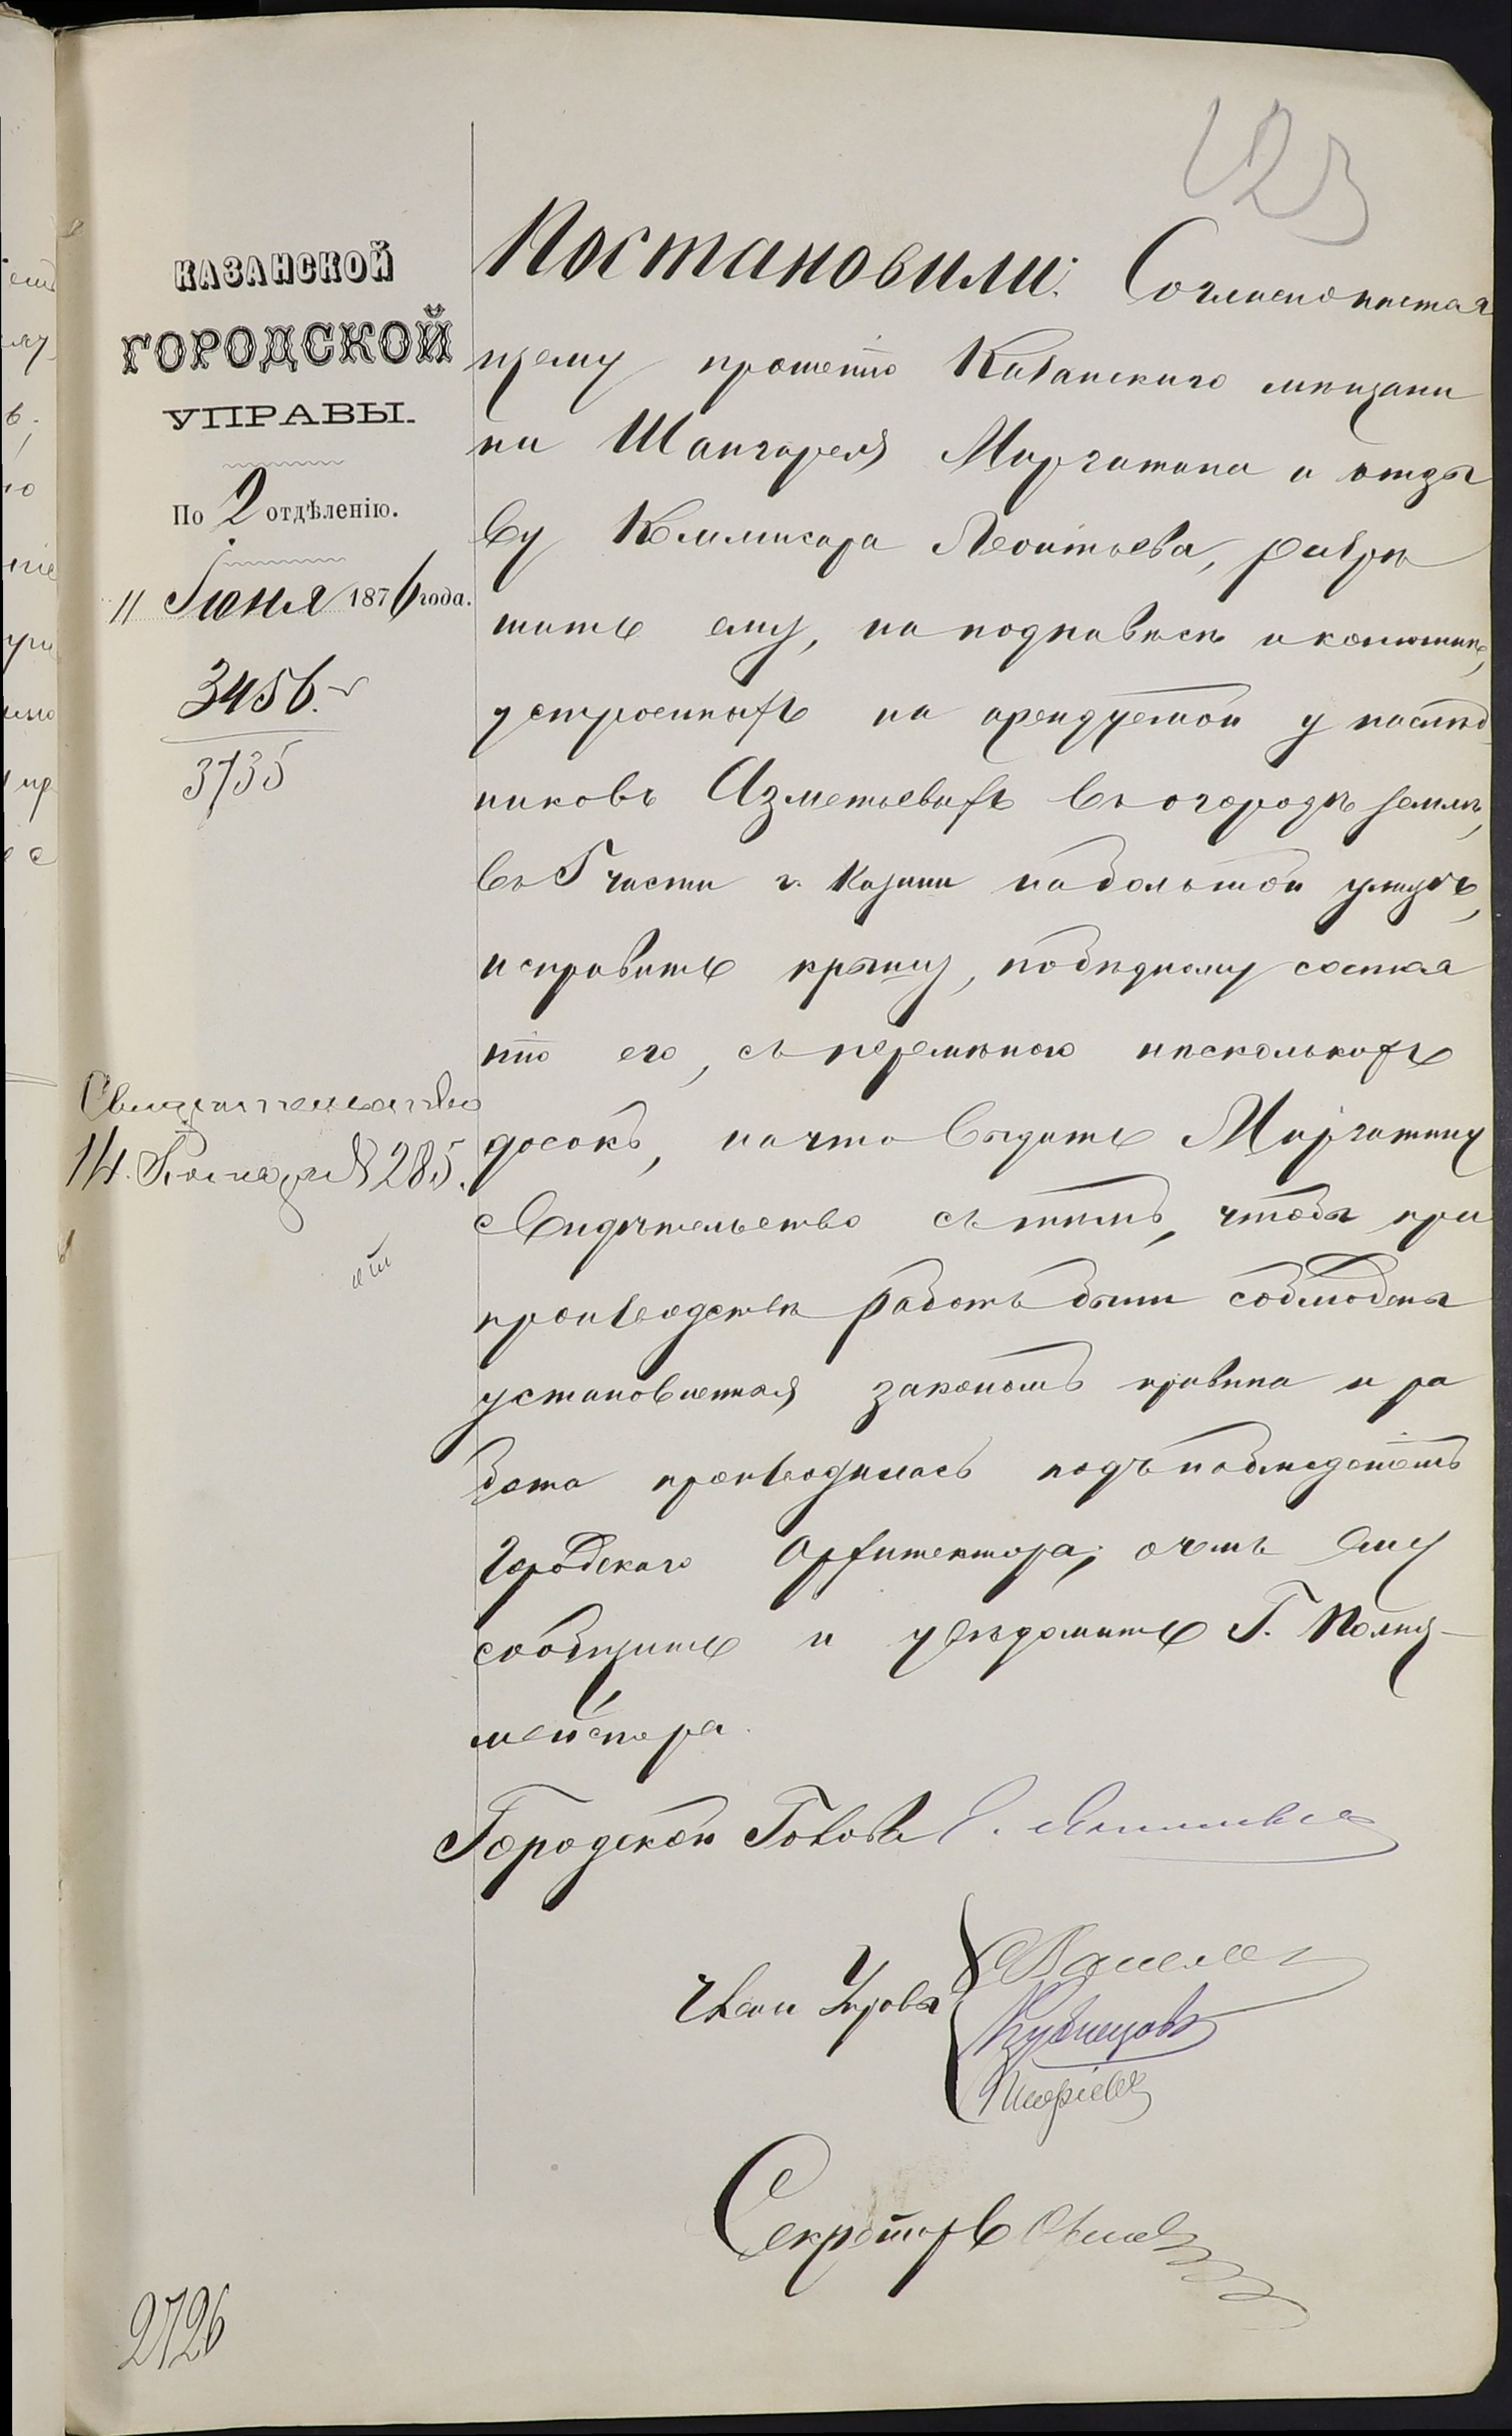 123
КАЗАНСКОЙ
ГОРОДСКОЙ
УПРАВЫ.
По 2 отдѣленію.
11 Іюня 1876 года.
3456.
3735
Свидѣтельство
14. № 285.
Постановили: Согласно настоя
щему прошенію Казанскаго мѣщани
на Шангарея Миргатина и отзы
ву Коммисара Леонтьева, разрѣ
шить ему, на подновѣсѣ и конюшнѣ,
устроенныхъ на арендуемой у наслѣд
никовъ Азметьевыхъ въ огородѣ землѣ,
въ 5 части г. Казани на большой улицѣ,
исправить крышу, по бѣдному состоя
нію его, съ перемѣною нѣсколькихъ
досокъ, на что выдать Миргатину
свидѣтельство съ тѣмъ, чтобы при
производствѣ работъ были соблюдены
установленныя закономъ правила и ра
бота производилась подъ наблюденіемъ
Городскаго Архитектора; о чемъ ему
сообщить и увѣдомить Г. Полиц-
мейстера.
Городской Голова
Члены Управы
Кузнецовъ
Секретарь
2726